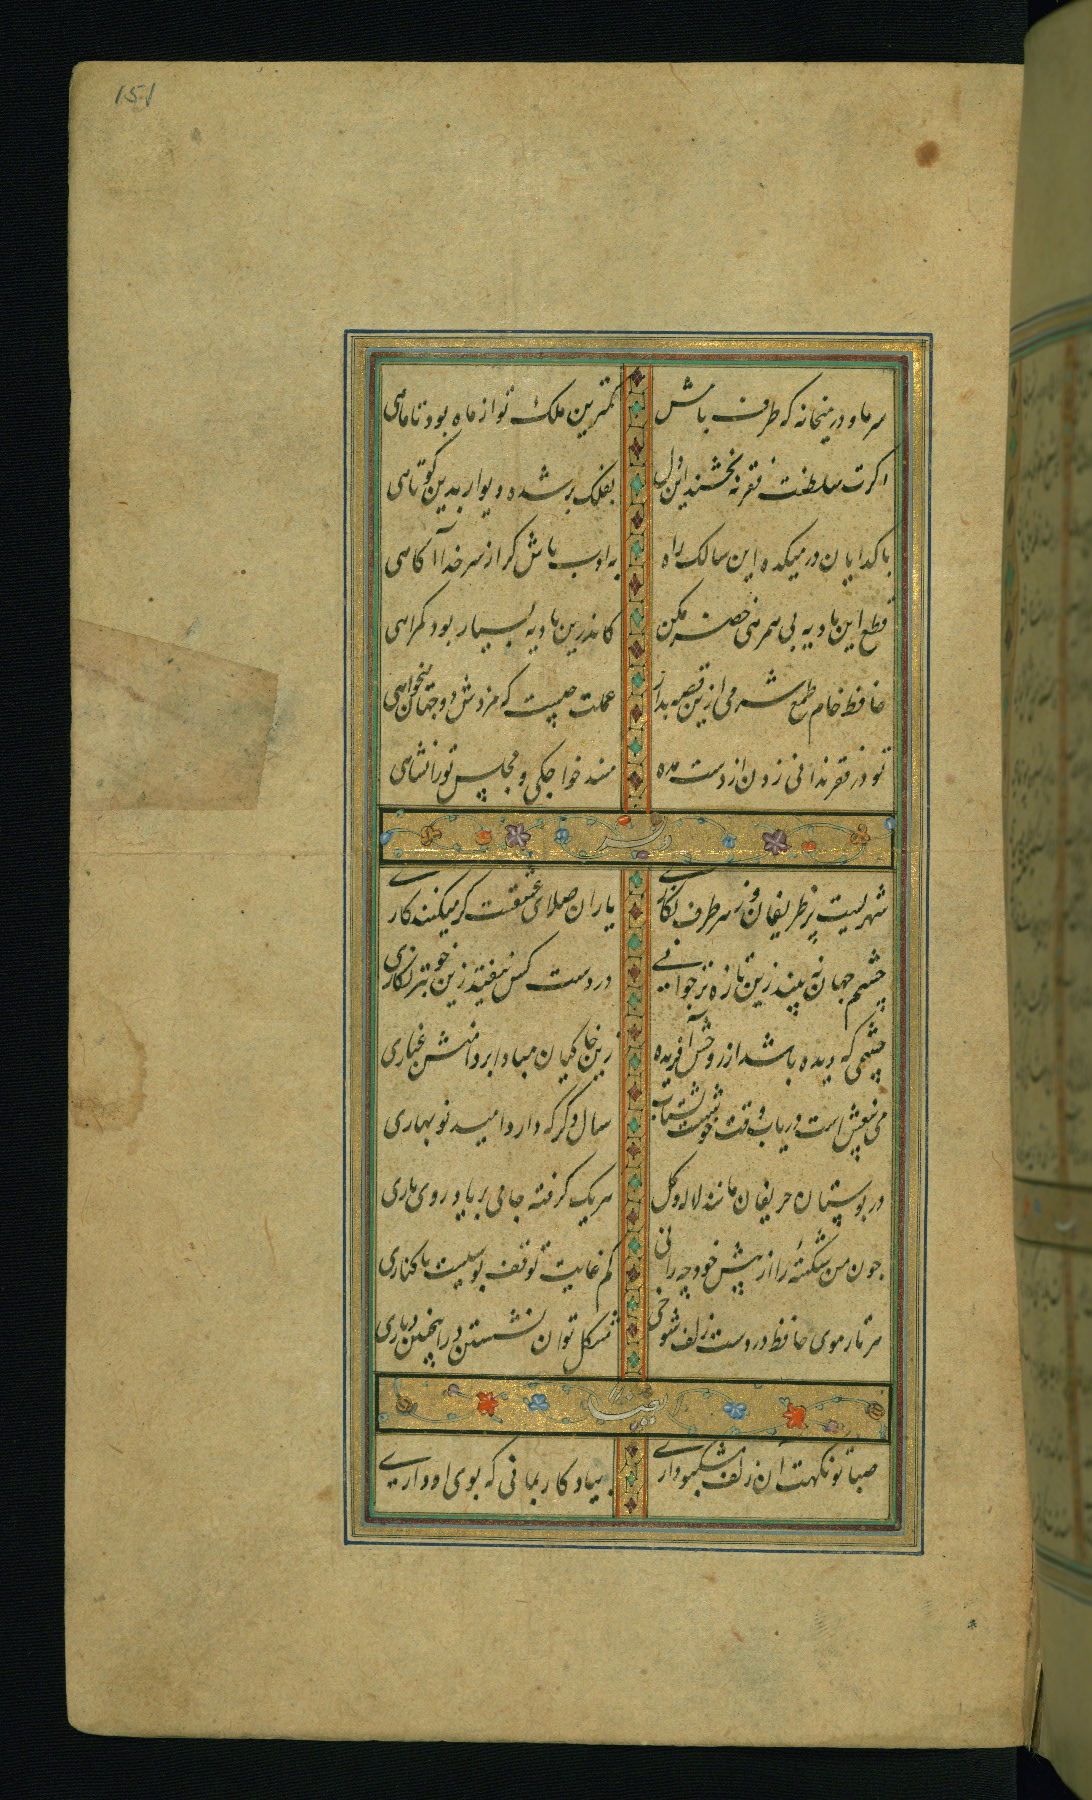 151
سر ما و در میخانه که طرف بامش کمترین ملک تو از ماه بود تا ماهی
اکرت سلطنت فقر نه بخشند ای دل بفلک بر شده دیوار بدین کوتاهی
با کدایان در میکده این سالک راه به ادب باش کر از سر خدا آکاهی
قطع این بادیه بی همرهی خضر مکن کاندرین بادیه بسیار بود کمراهی
حافظ خام طمع شرمی ازین قصه بدار عملت چیست که مزدش دو جهان میخواهی
تو در فقر ندانی زدن از دست مده مسند خواجکی و مجلس تورانشاهی
شهریست پر ظریفان وز هر طرف نکاری یاران صلای عشقست کر میکنید کاری
چشم جهان نه بیند زین تازه تر جوانی در دست کس نیفتد زین خوبتر نکاری
چشمی که دیده باشد از روحش آفریده زین خاکیان مبادا بر دامنش غباری
می بیغش است دریاب وقت خوشست بشتاب سال دکر که دارد امید نو بهاری
در بوستان حریفان مانند لاله و کل هر یک کرفته جامی بر یاد روی یاری
چون من شکسته را از پیش خود چه رانی کم غایت توقف بوسیست یا کناری
هر تار موی حافظ در دست زلف شوخی مشکل توان نشستن در اینچنین دیاری
صبا تو نکهت آن زلف مشکبو داری بیادکار بمانی که بوی او داری